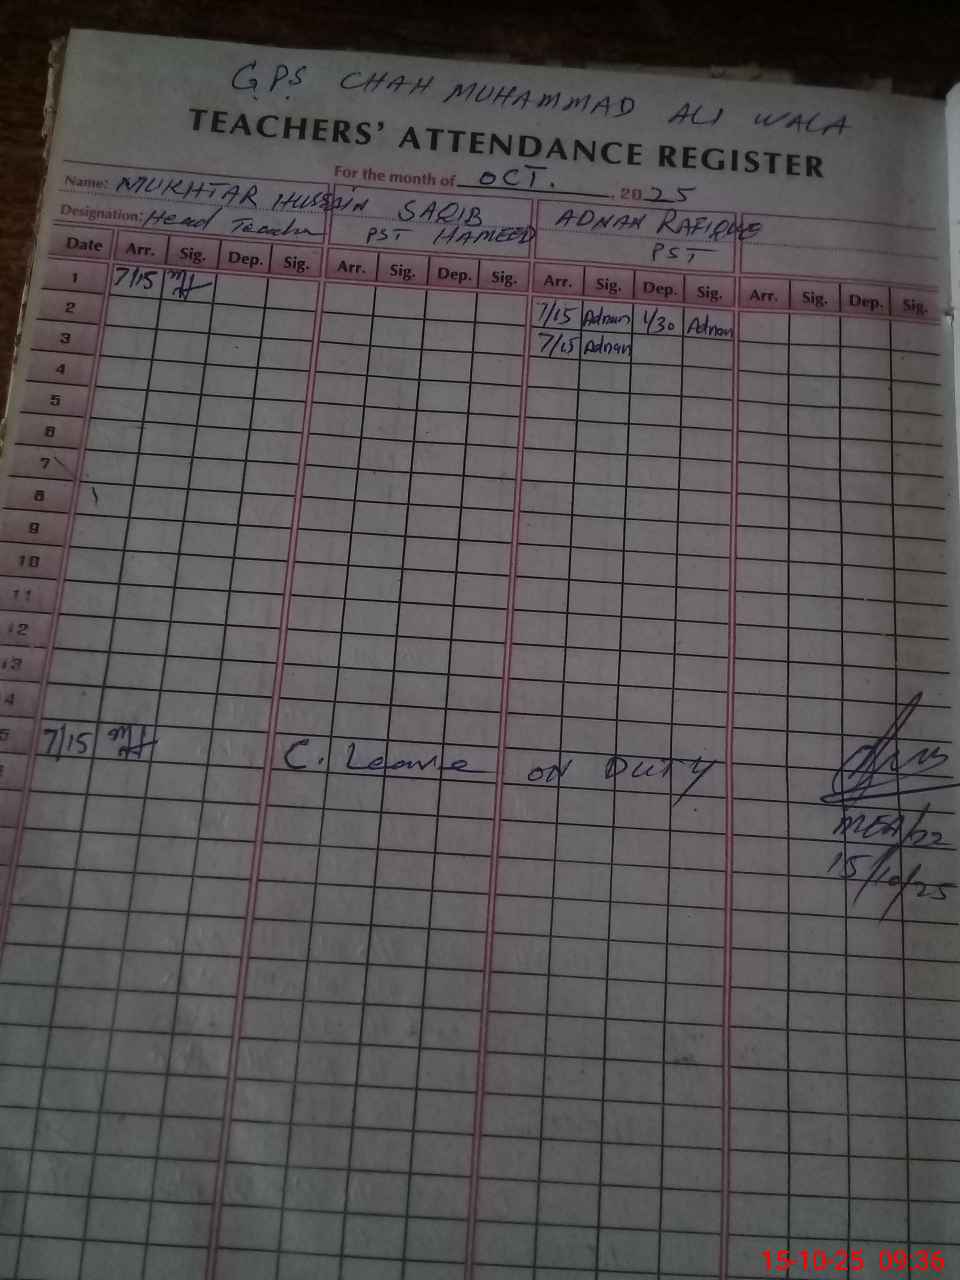 G.P.S CHAH MUHAMMAD ALI WALA
TEACHERS' ATTENDANCE REGISTER
For the month of OCT. 2025
Name: MUKHTAR HUSSAIN SAQIB ADNAN RAFIQUE
Designation: Head Teacher PST HAMEED PST
Date Arr. Sig. Dep. Sig. Arr. Sig. Dep. Sig. Arr. Sig. Dep. Sig. Arr. Sig. Dep. Sig.
1 7/15
2 7/15 Adnan 1/30 Adnan
3 7/15 Adnan
4
5
6
7
8
9
10
11
12
13
4
5 7/15 C. Leave ON DUTY
MEA/22
15/10/25
15-10-25 09:36